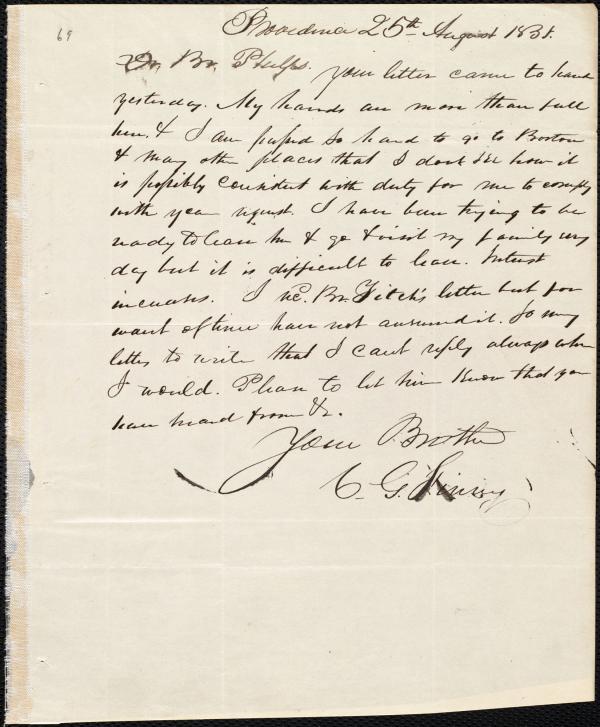 69
Providence 25th August 1831.
Dr. Br. Phelps.
Your letter came to hand
yesterday. My hands are more than full
here. & I am passed so hard to go to Boston
& many other places that I dont see how it
is possibly consistent with duty for me to comply
with your request. I have been trying to be
ready to leave here & go & visit my family every
day but it is difficult to leave. Interest
increases. I recd. Br. Fitch's letter but for
want of time have not answered it. So many
letters to write that I cant reply always when
I would. Please to let him know that you
have heard from &c.
Your Brother
C. G. Finney